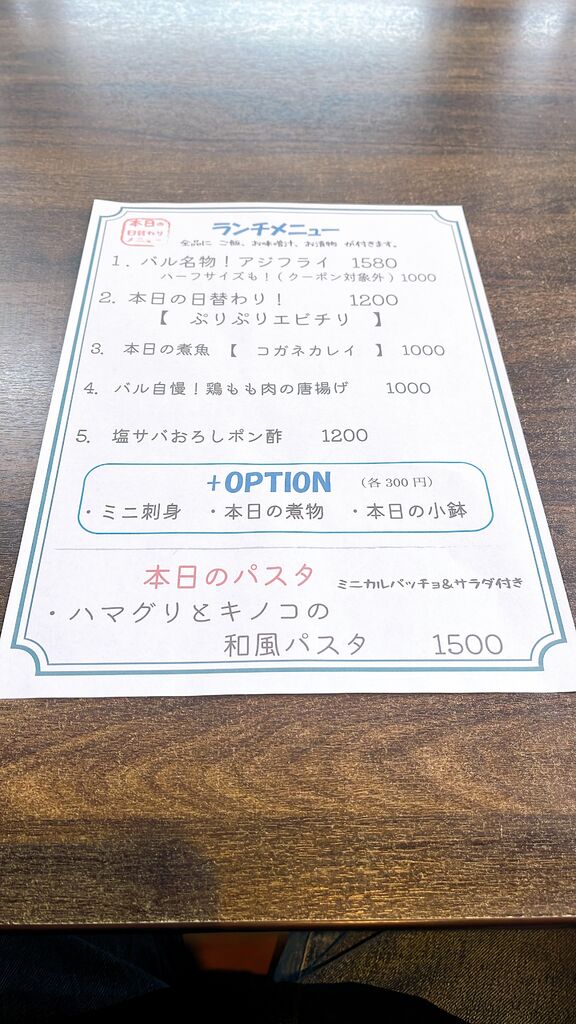 本日の
日替わり
メニュー
ランチメニュー
全品に ご飯、お味噌汁、お漬物 が付きます。
1. バル名物!アジフライ 1580
ハーフサイズも!(クーポン対象外)1000
2. 本日の日替わり! 1200
【 ぷりぷりエビチリ 】
3. 本日の煮魚 【 コガネカレイ 】 1000
4. バル自慢!鶏もも肉の唐揚げ 1000
5. 塩サバおろしポン酢 1200
+OPTION (各300円)
・ミニ刺身 ・本日の煮物 ・本日の小鉢
本日のパスタ ミニカルパッチョ&サラダ付き
・ハマグリとキノコの
和風パスタ 1500